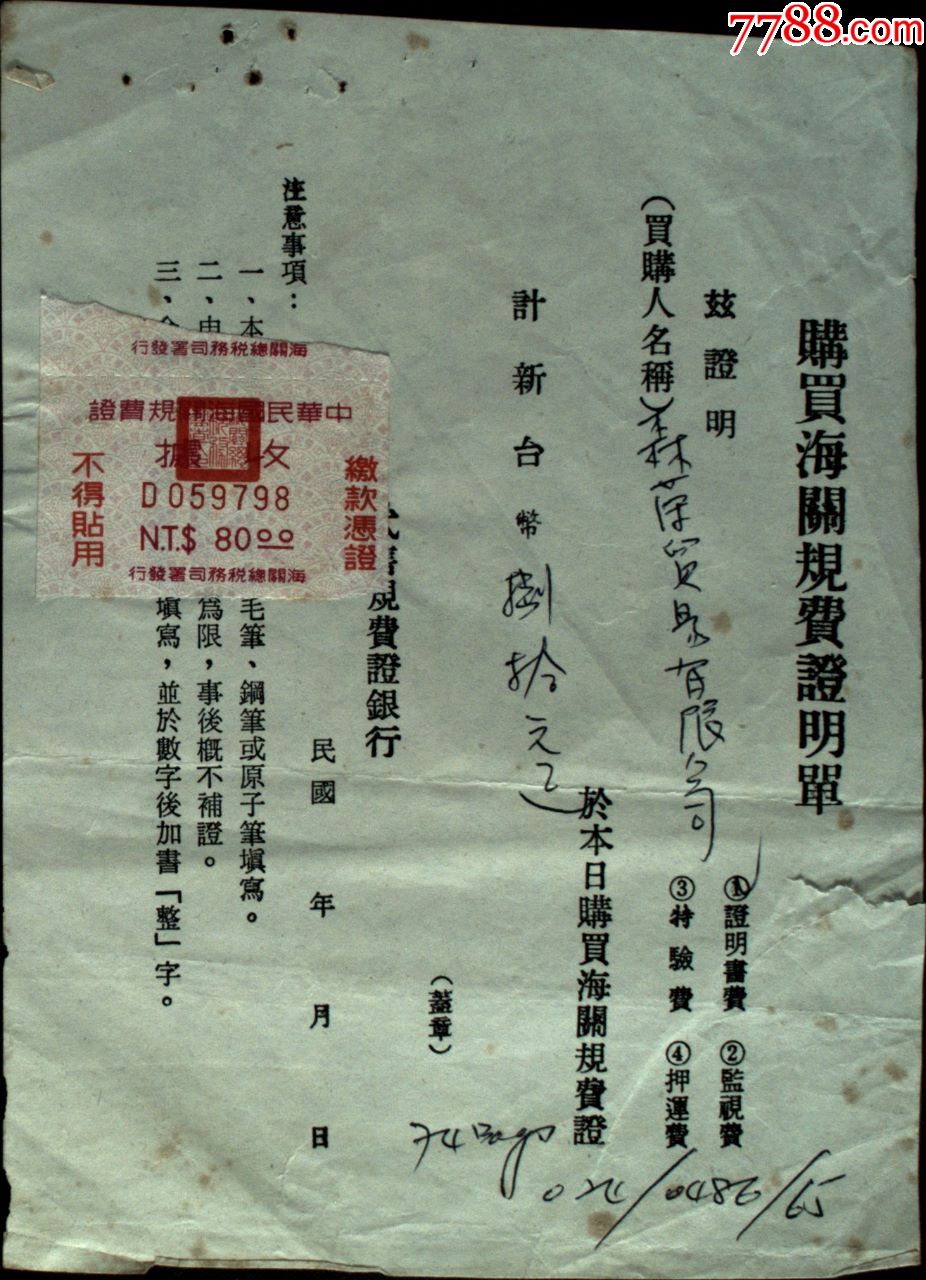 7788.com
購買海關規費證明單
①證明書費 ②監視費
茲證明
③特驗費 ④押運費
(買購人名稱)森林
貿易有限公司
於本日購買海關規費證
計新台幣捌拾元正
(蓋章)
規費證銀行
民國 年 月 日
注意事項：
一、本
毛筆、鋼筆或原子筆塡寫。
二、申
為限，事後概不補證。
三、
塡寫，並於數字後加書「整」字。
海關總稅務司署發行
中華民國海關規費證
收據
D059798
N.T.$ 80.00
繳款憑證
不得貼用
海關總稅務司署發行
74 Bags
024/0486/65